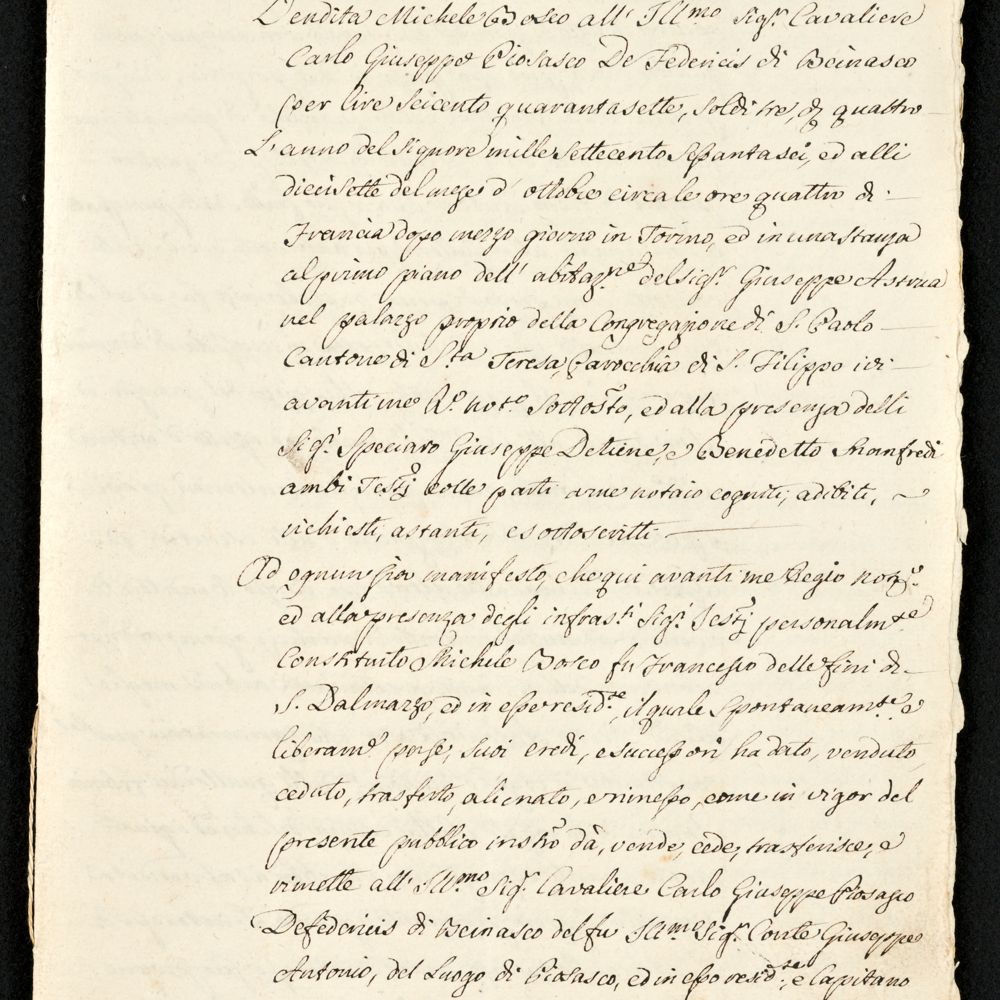 Vendita Michele Bosco all' Ill.mo Sig.r Cavaliere
Carlo Giuseppe Piosasco De Federicis di Beinasco
per lire seicento quarantasette, soldi tre, d. quattro
L'anno del Signore mille settecento settantasei, ed alli
diecisette del mese d' ottobre circa le ore quattro di
Francia dopo mezzo giorno in Torino, ed in una stanza
al primo piano dell' abitaz.ne del Sig.r Giuseppe Astrua
nel palazzo proprio della Congregazione di S. Paolo
Cantone di S.ta Teresa, Parocchia di S. Filippo ivi
avanti me R.o not.o sottos.to, ed alla presenza delli
Sig.i Speciaro Giuseppe Detiene, e Benedetto Manfredi
ambi Testj colle parti a me notaio cogniti, adibiti,
richiesti, astanti, e sottoscritti
Ad ognun sia manifesto, che qui avanti me Regio not.o
ed alla presenza degli infras.ti Sig.i Testj personalm.te
Constituito Michele Bosco fu Francesco delle fini di
S. Dalmazzo, ed in esse resid.te, il quale spontaneam.te e
liberam.e per se, suoi eredi, e successori ha dato, venduto,
ceduto, trasferto, alienato, e rimesso, come in vigor del
presente pubblico instro dà, vende, cede, trasferisce, e
rimette all' Ill.mo Sig.r Cavaliere Carlo Giuseppe Piosasco
Defedericis di Beinasco del fu Ill.mo Sig.r Conte Giuseppe
Antonio, del Luogo di Piosasco, ed in esso resid.te, e Capitano